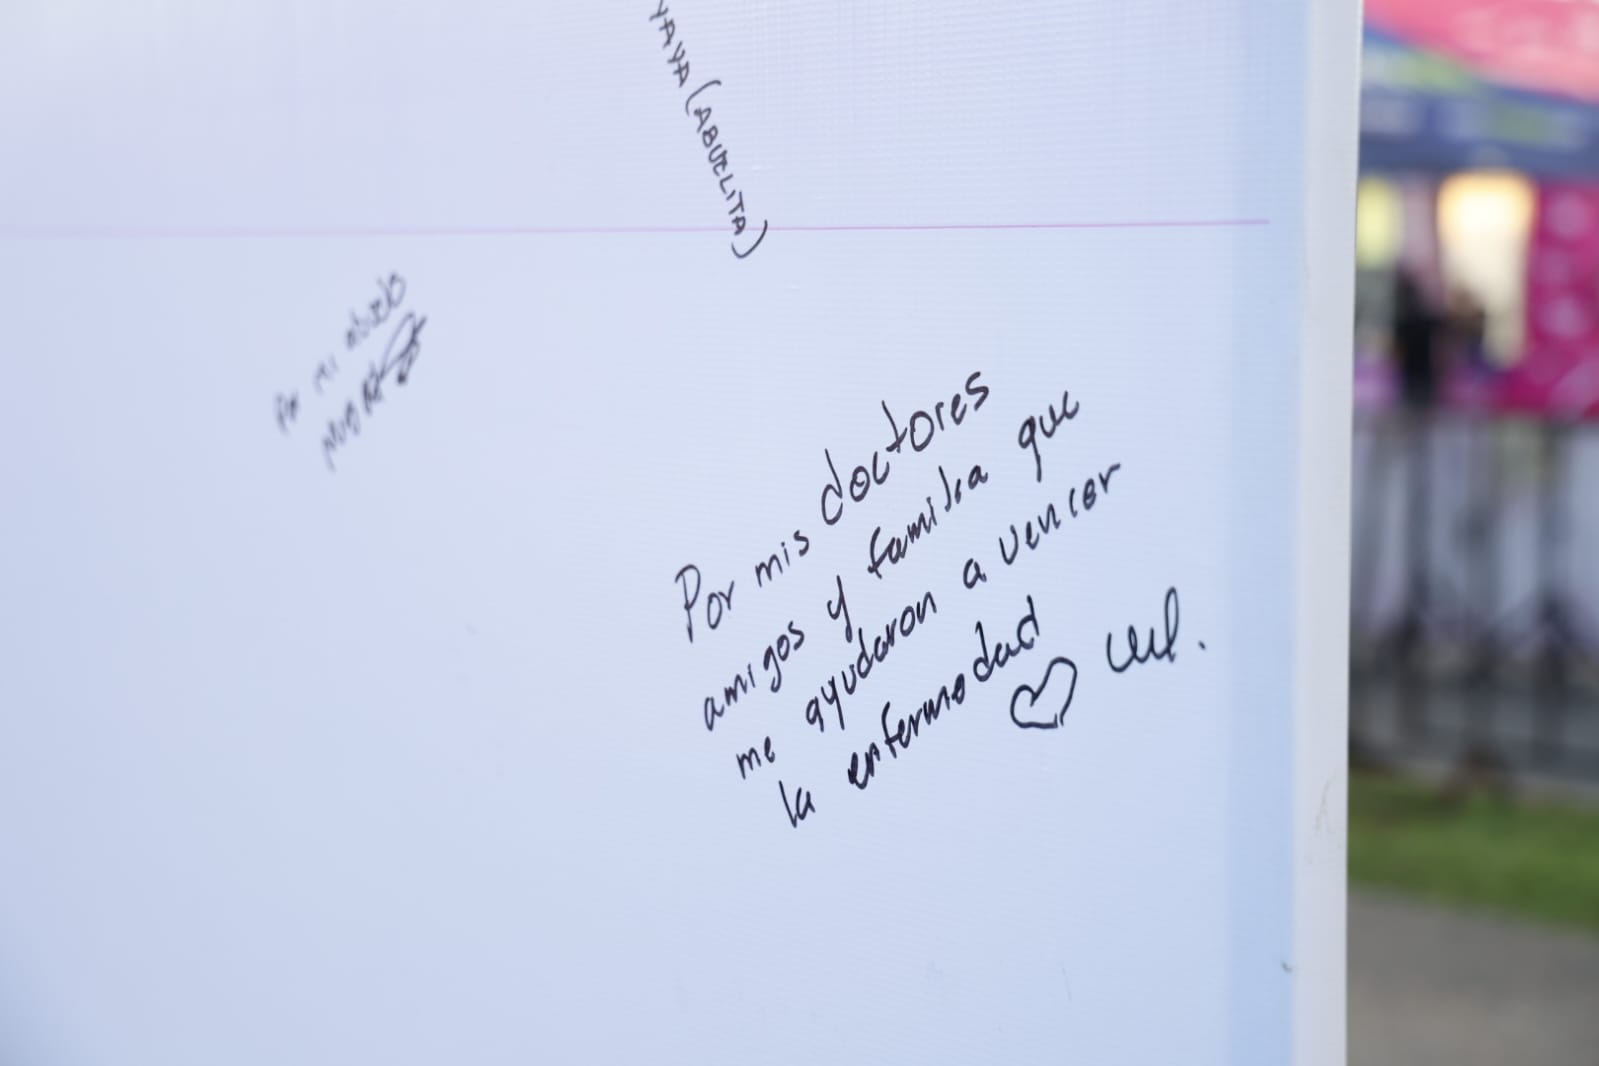 YAYA (ABUELITA)
Por mi abuelo
Por mis doctores
amigos y familia que
me ayudaron a vencer
la enfermedad